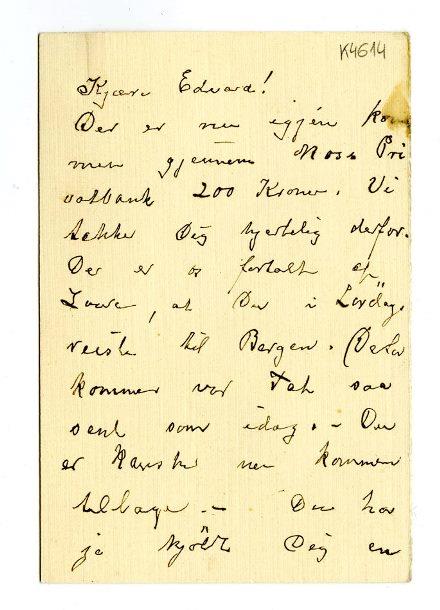 K4614
Kjære Edvard!
Der er nu igjén kom
men gjennem Moss Pri
vatbank 200 Kroner. Vi
takke Dig hjertelig derfor.
Der er os fortalt af
at Du i Lördag.
reiste til Bergen. (Defor
kommer vor Tak saa
sent som idag. - Du
er kanske nu kommen
tilbage. - Du har
jo kjöbt Dig en